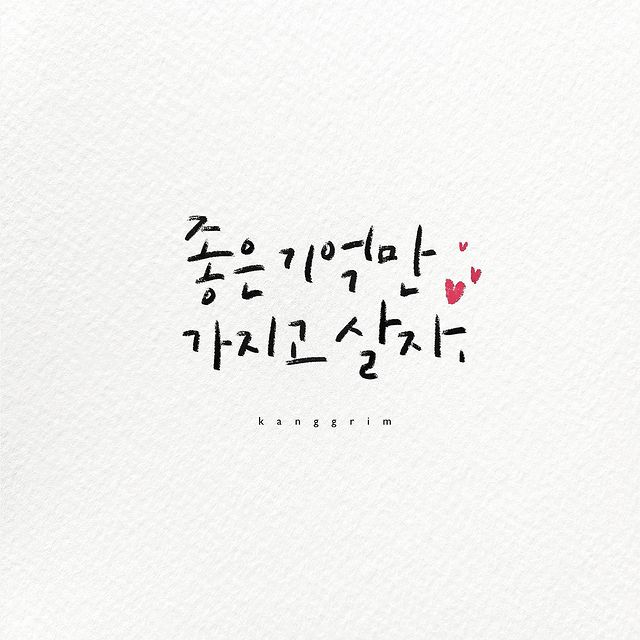 좋은 기억만
가지고 살자.
kanggrim